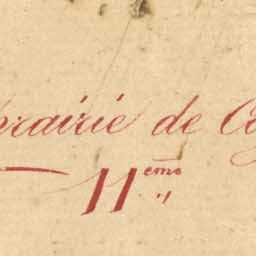 brairie de Co
11 eme "